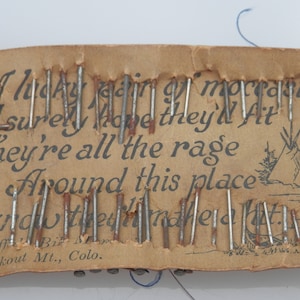 A lucky pair o' moccas
I surely hope they'd fit
hey're all the rage
Around this place
now they'll make a hit.
Big
kout Mt., Colo.